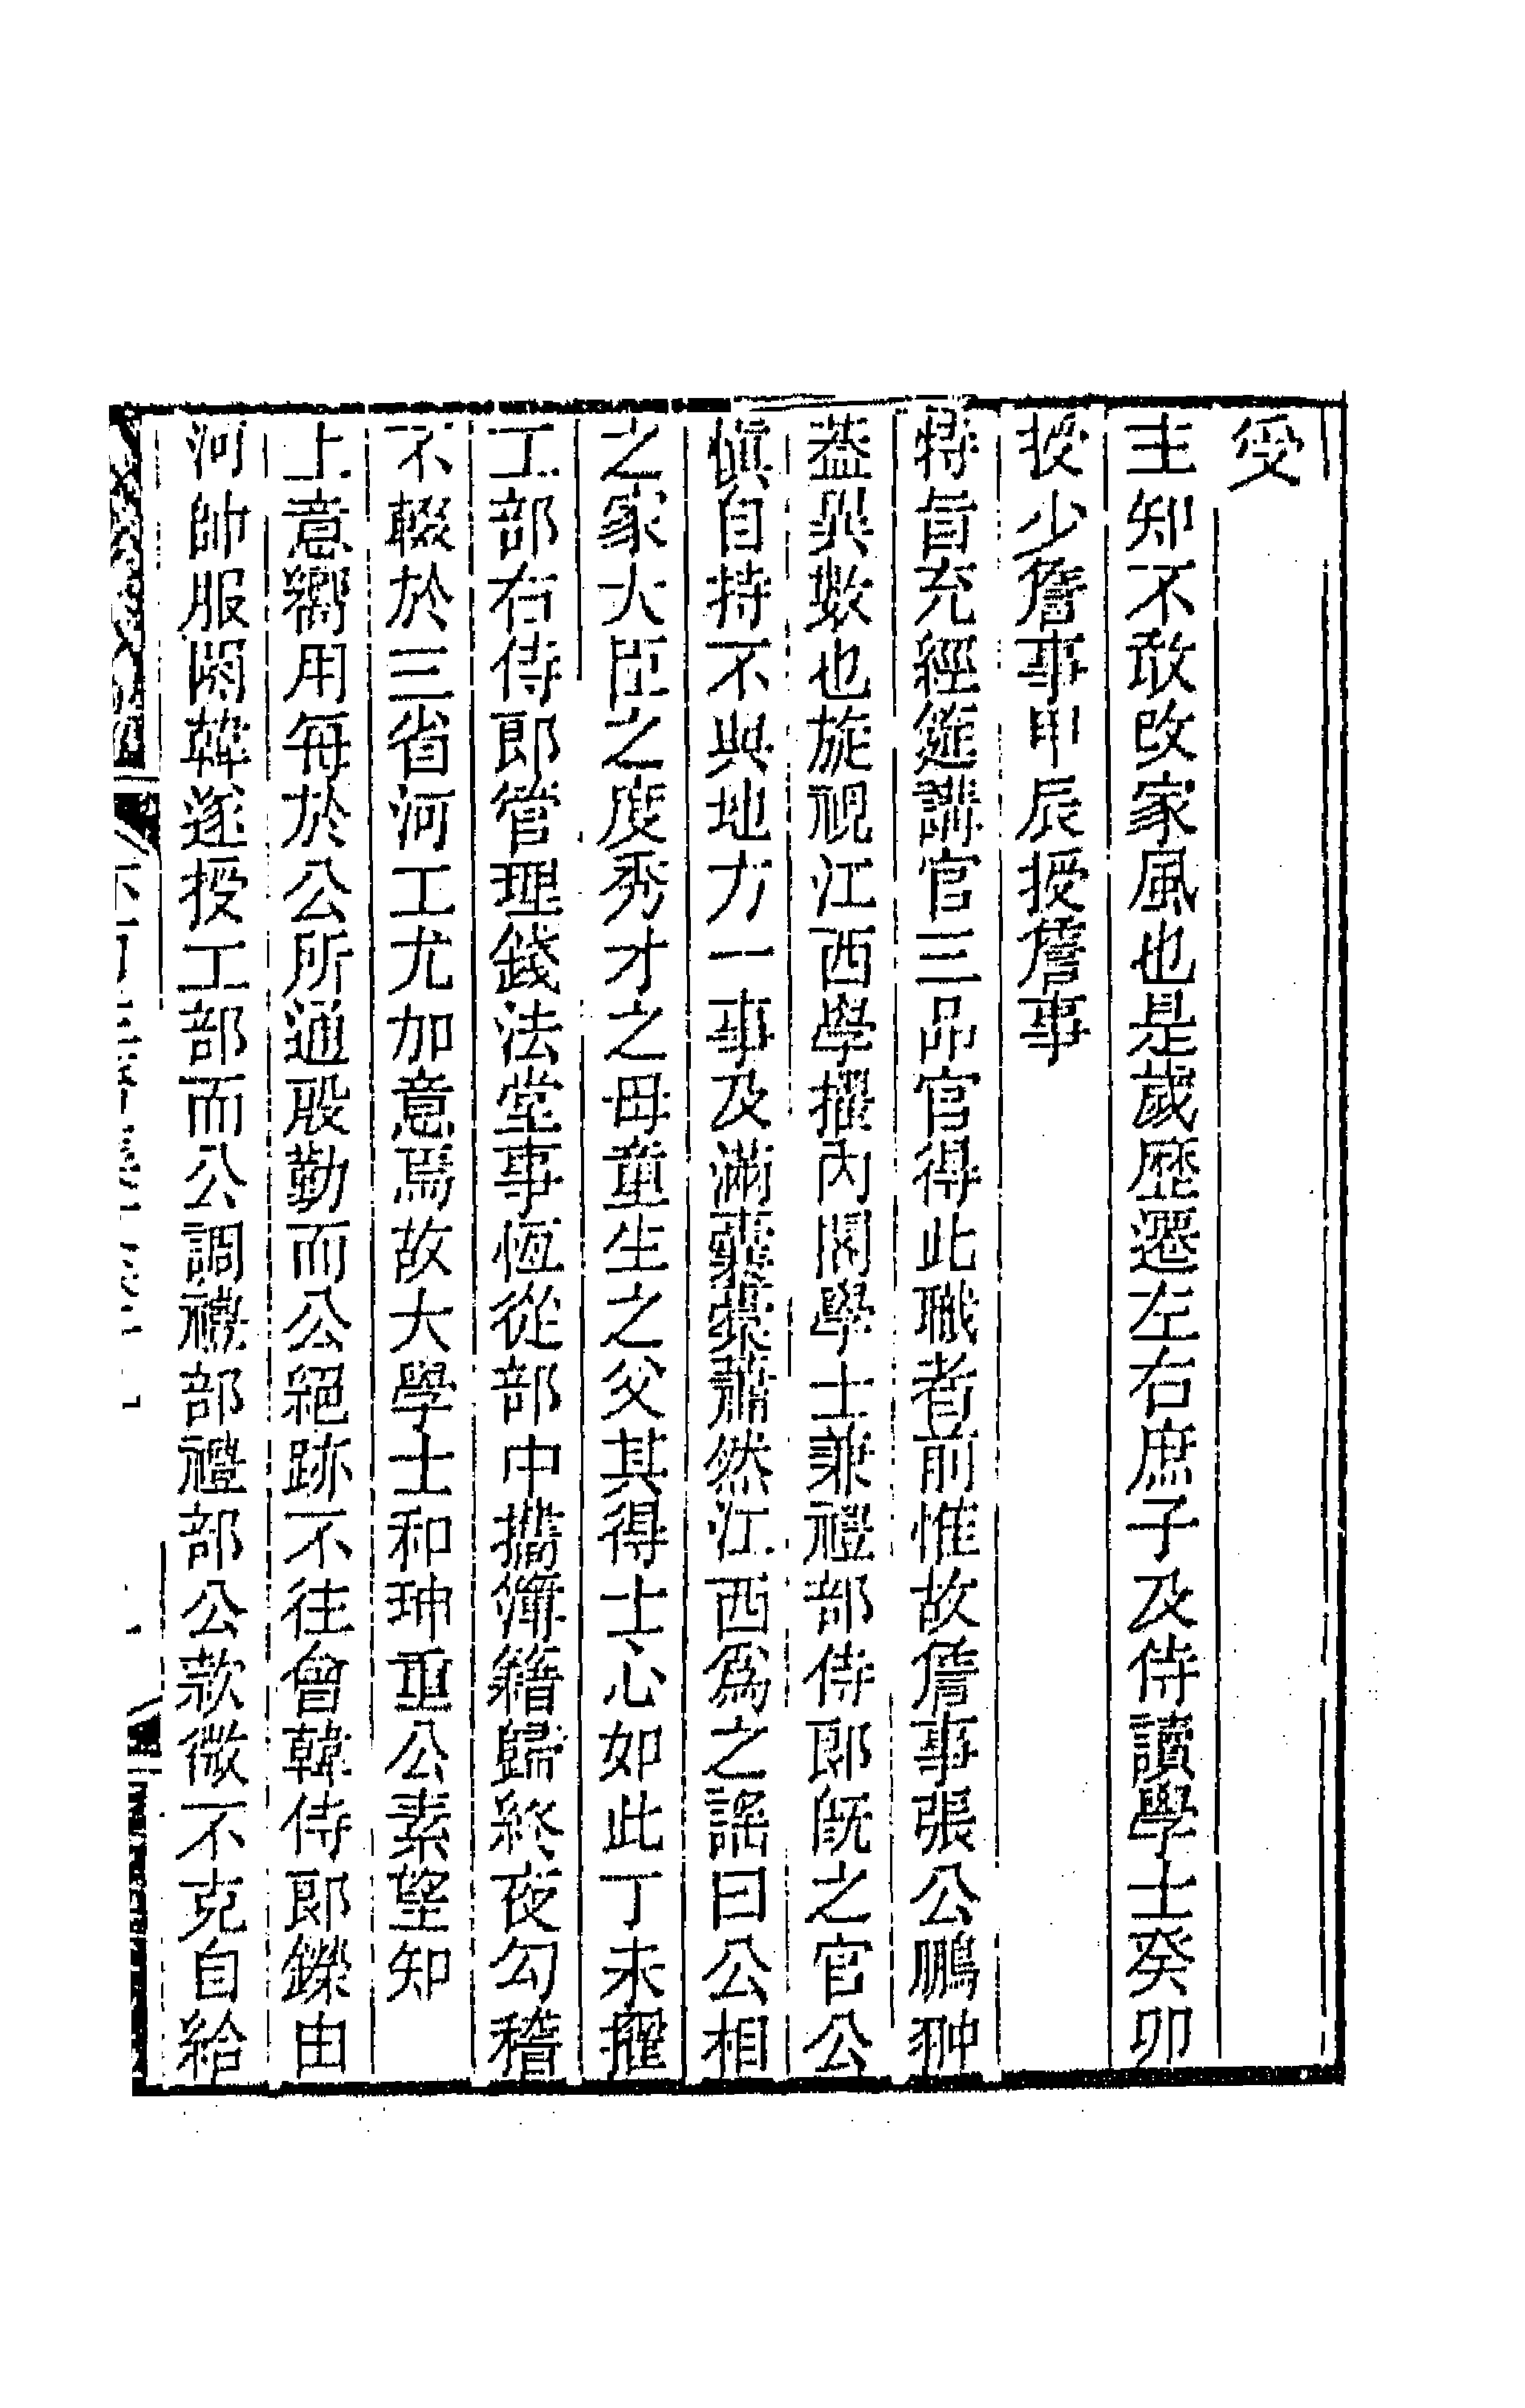 受
主知不敢改家風也是歲歷遷左右庶子及侍讀學士癸卯
授少詹事甲辰授詹事
特旨充經筵講官三品官得此職者前惟故詹事張公鵬翀
葢異數也旋視江西學擢內閣學士兼禮部侍郎旣之官公
愼自持不與地方一事及滿橐槖蕭然江西爲之謠曰公相
之家大臣之度秀才之母童生之父其得士心如此丁未擢
工部右侍郎管理錢法堂事恆從部中攜簿籍歸終夜勾稽
不輟於三省河工尤加意焉故大學士和珅重公素望知
上意嚮用每於公所通殷勤而公絕跡不往會韓侍郎鑅由
河帥服闋韓遂授工部而公調禮部禮部公款微不克自給